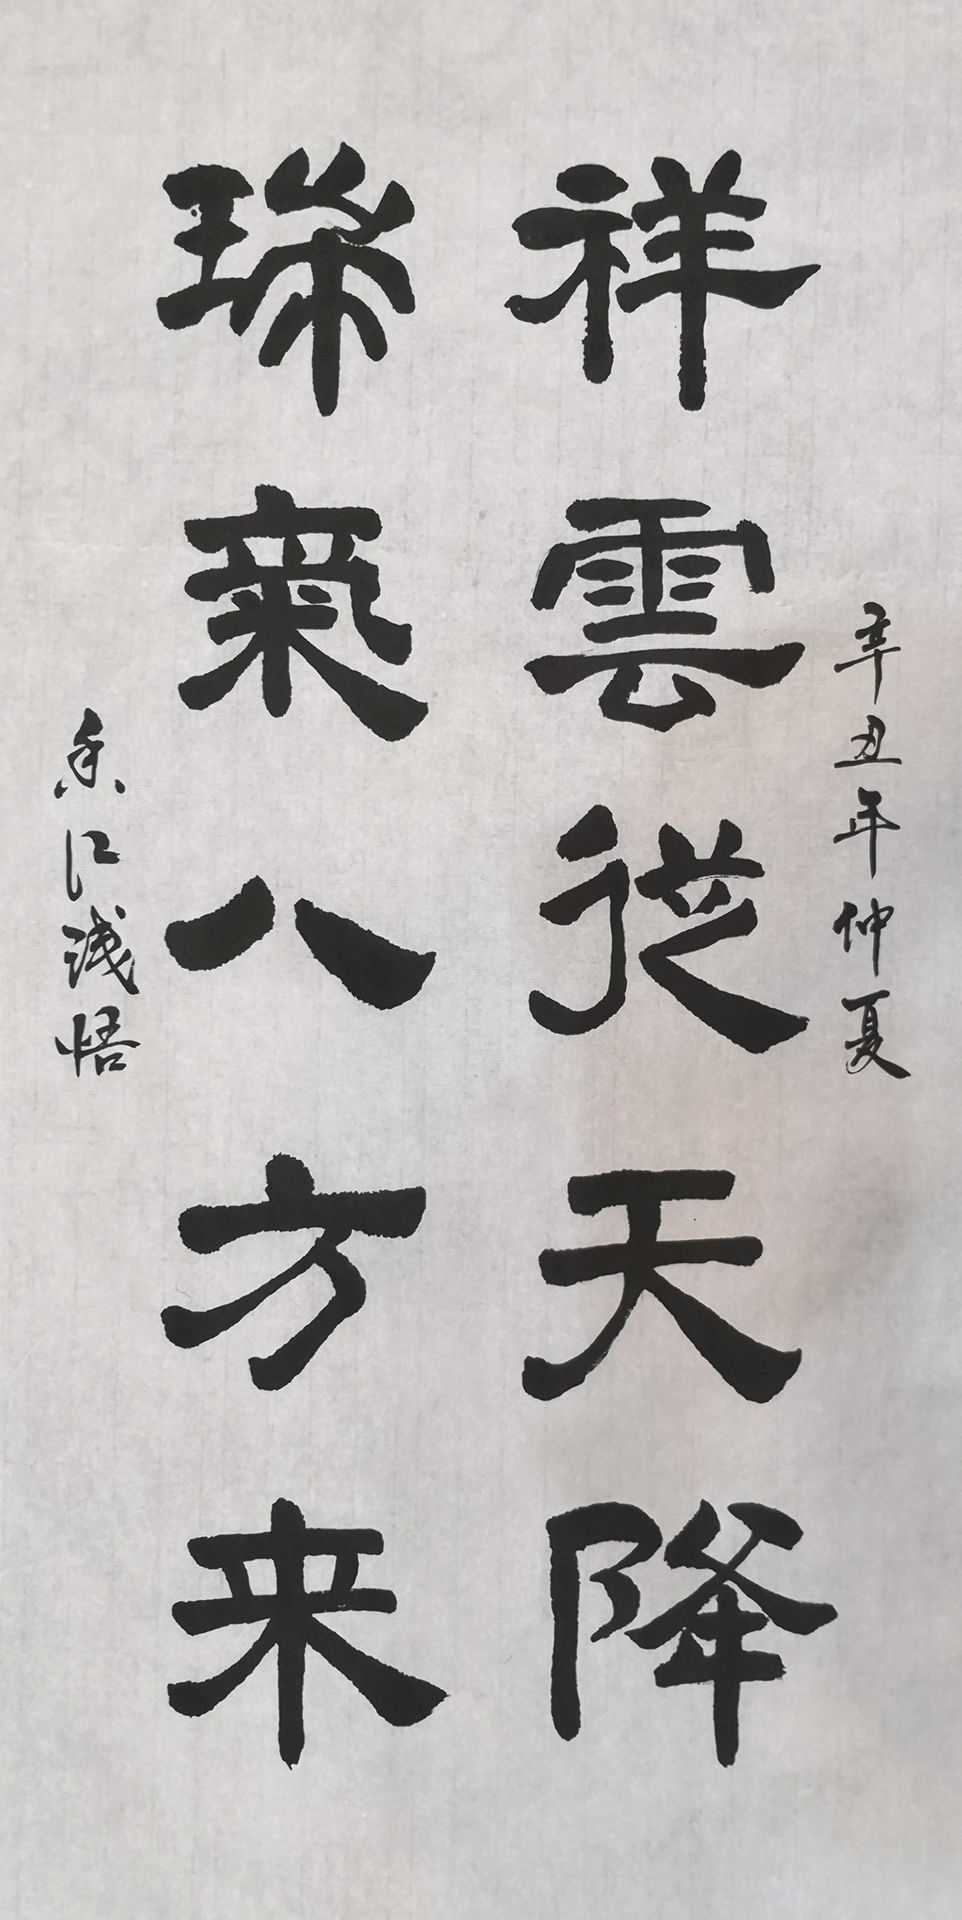 辛丑年仲夏
祥雲從天降
瑞氣八方来
香江浅悟